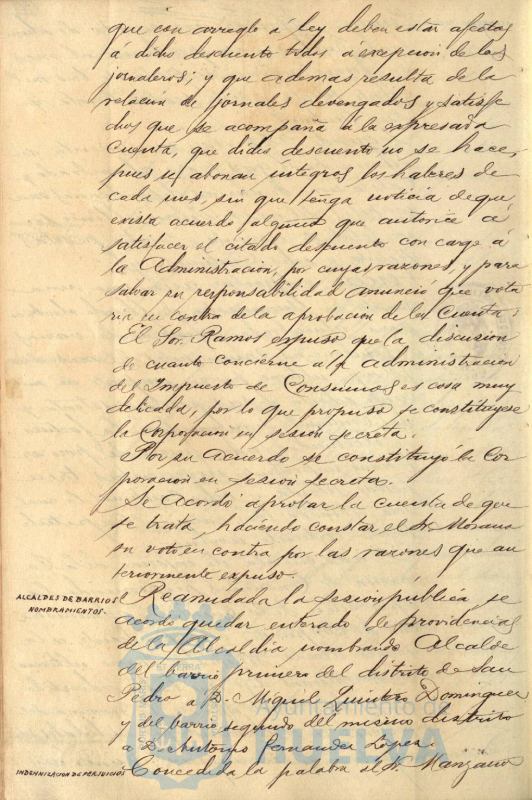 que con arreglo á ley deben estar afectos
á dicho descuento todos á excepcion de los
jornaleros; y que ademas resulta de la
relación de jornales devengados y satisfe
chos que se acompaña á la expresada
cuenta, que dicho descuento no se hace,
pues se abonan íntegros los haberes de
cada mes, sin que tenga noticia de que
exista acuerdo alguno que autorice á
satisfacer el citado descuento con cargo á
la Administración, por cuyas razones, y para
salvar su responsabilidad anunció que vota
ria en contra de la aprobación de la Cuenta.
El Sor. Ramos expuso que la discusion
de cuanto concierne á la administración
del Impuesto de Consumos es cosa muy
delicada, por lo que propuso se constituyese
la Corporación en sesión secreta.
Por su Acuerdo se constituyó la Cor
poración en sesión secreta.
Se Acordó aprobar la cuenta de que
se trata, haciendo constar el Sr. Morano
su voto en contra por las razones que an
teriormente expuso.
ALCALDES DE BARRIOS
NOMBRAMIENTOS.
Reanudada la sesion pública se
acordó quedar enterado de providencias
de la Alcaldia nombrando Alcalde
del barrio primero del distrito de San
Pedro a D. Miguel Quintero Dominguez
y del barrio segundo del mismo distrito
a D. Antonio Fernandez Lopez.
INDEMNIZACION DE PERJUICIOS
Concedida la palabra al Sr. Manzano
Ayuntamiento de
HUELVA